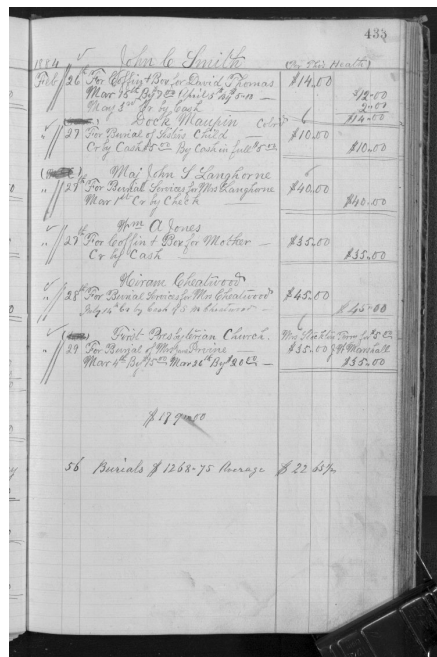 435
1884 John C Smith
Feb 26th For Coffin & Box for David Thomas $14.00
Mar 15th By $7.00 April 5th $5.00 $12.00
May 3rd Cr by Cash 2.00
Dock Maupin Cold $14.00
" 27 For Burial of Sisters Child $10.00
Cr by Cash $5.00 By Cash in full $5.00 $10.00
Maj John S Langhorne
" 27th For Burial Services for Mrs Langhorne $40.00
Mar 1st Cr by Check $40.00
Wm A Jones
" 27th For Coffin & Box for Mother $35.00
Cr by Cash $35.00
Hiram Cheatwood
" 28th For Burial Services for Mrs Cheatwood $45.00
July 14th by Cash $45.00
First Presbyterian Church
" 29 For Burial of Mrs $35.00 Marshall
Mar 4th By $15.00 Mar 26th By $20.00 $35.00
$179.00
56 Burials $1268.75 Average $22.65